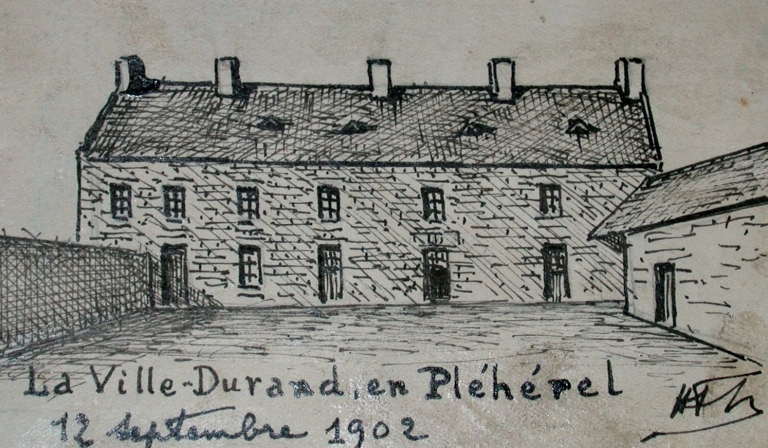 La Ville-Durand, en Pléhérel
12 septembre 1902